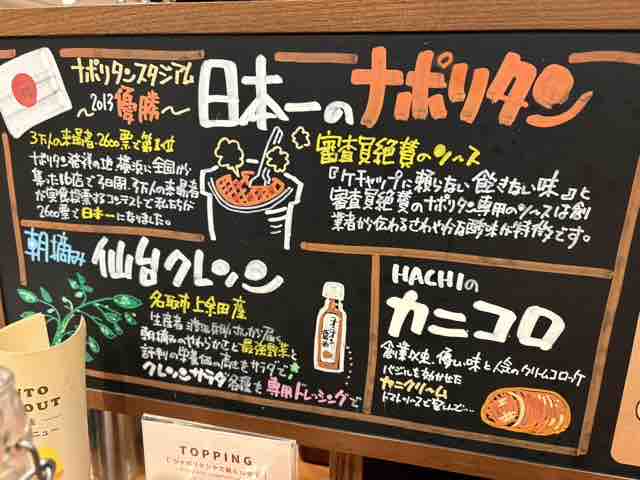 ナポリタンスタジアム
〜2013優勝〜
日本一のナポリタン
3万人の来場者、2600票で第1位
ナポリタン発祥の地 横浜に全国から
集った16店で3日間、3万人の来場者
が実食投票するコンテストで私たちが
2600票で日本一になりました。
審査員絶賛のソース
『ケチャップに頼らない飽きない味』と
審査員絶賛のナポリタン専用のソースは創
業者から伝わるさわやかな酸味が特徴です。
朝摘み 仙台クレソン
名取市上余田産
朝摘みのやわらかさと最強野菜と
評判の栄養価の高さをサラダで
クレソンサラダ各種を専用ドレッシングで
HACHIの
カニコロ
創業以来、優しい味と人気のクリームコロッケ
カニクリーム
トマトソースで
OUT
ニュー
TOPPING